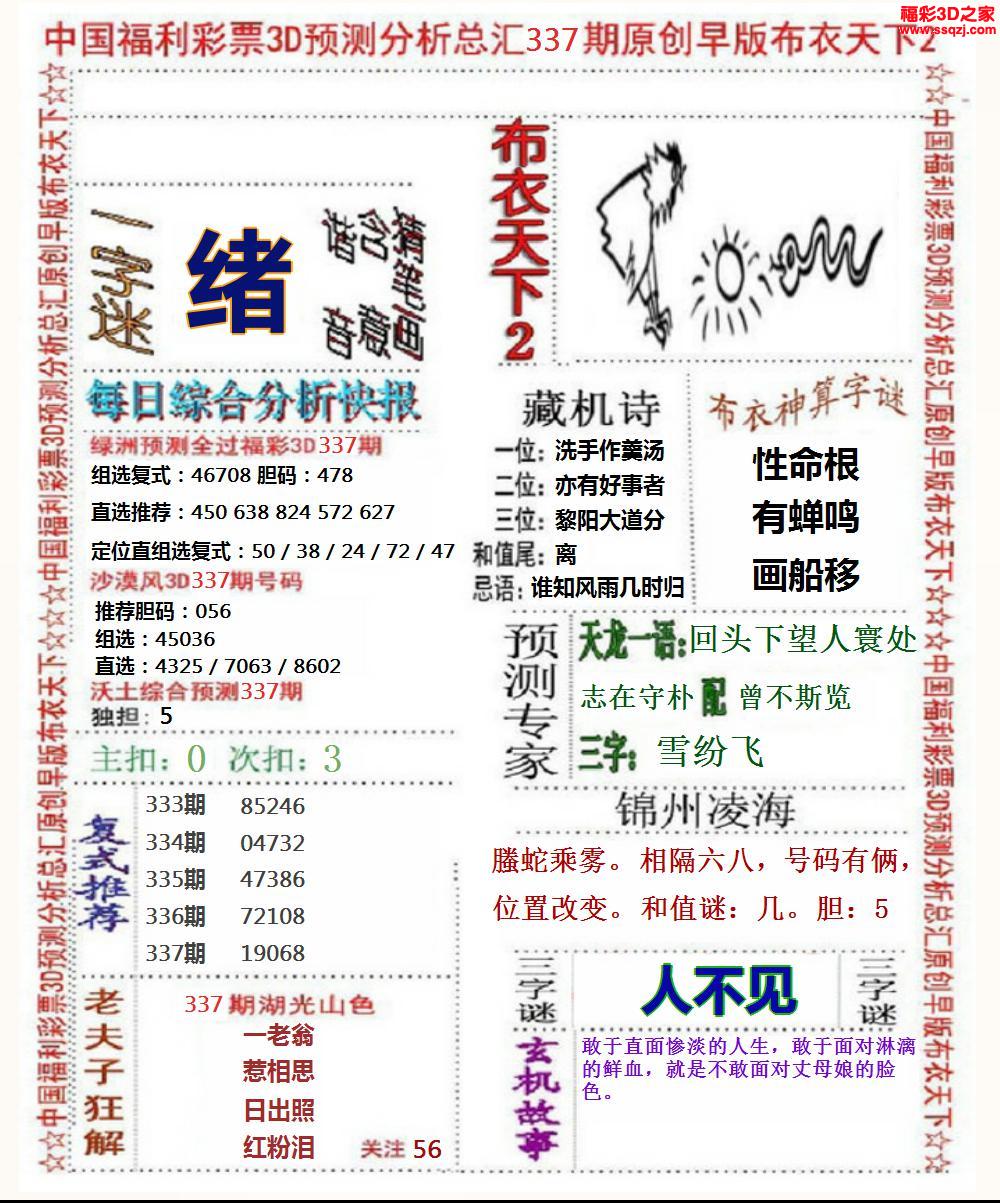 福彩3D之家
www.ssqzj.com
中国福利彩票3D预测分析总汇337期原创早版布衣天下2
☆☆中国福利彩票3D预测分析总汇原创早版布衣天下☆☆☆中国福利彩票3D预测分析总汇原创早版布衣天下☆☆
一字迷
绪
每日综合分析快报
绿洲预测全过福彩3D337期
组选复式：46708 胆码：478
直选推荐：450 638 824 572 627
定位直组选复式：50 / 38 / 24 / 72 / 47
沙漠风3D337期号码
推荐胆码：056
组选：45036
直选：4325 / 7063 / 8602
沃土综合预测337期
独担：5
主扣：0 次扣：3
复式推荐
333期 85246
334期 04732
335期 47386
336期 72108
337期 19068
老夫子狂解
337期湖光山色
一老翁
惹相思
日出照
红粉泪 关注 56
布衣天下2
藏机诗
一位：洗手作羹汤
二位：亦有好事者
三位：黎阳大道分
和值尾：离
忌语：谁知风雨几时归
布衣神算字谜
性命根
有蝉鸣
画船移
预测专家
天龙一语：回头下望人寰处
志在守朴 配 曾不斯览
三字：雪纷飞
锦州凌海
螣蛇乘雾。相隔六八，号码有俩，
位置改变。和值谜：几。胆：5
三字谜
人不见
三字谜
玄机故事
敢于直面惨淡的人生，敢于面对淋漓
的鲜血，就是不敢面对丈母娘的脸
色。
☆☆中国福利彩票3D预测分析总汇原创早版布衣天下☆☆☆中国福利彩票3D预测分析总汇原创早版布衣天下☆☆